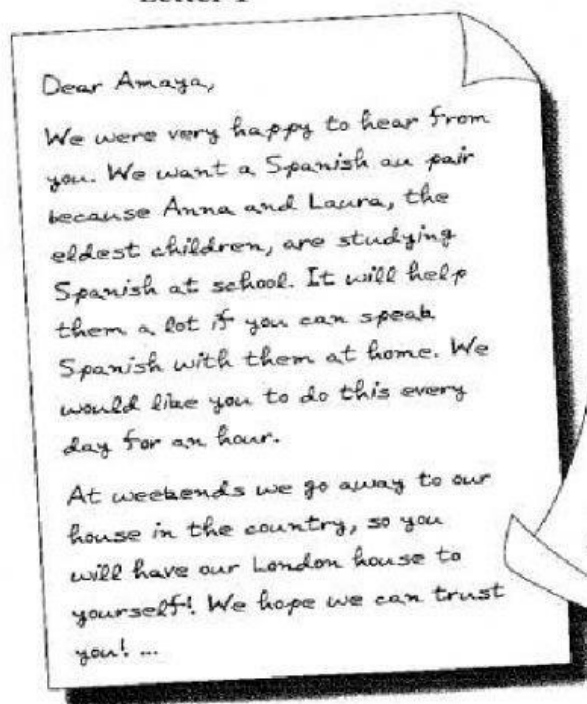 Dear Amaya,
We were very happy to hear from
you. We want a Spanish au pair
because Anna and Laura, the
eldest children, are studying
Spanish at school. It will help
them a lot if you can speak
Spanish with them at home. We
would like you to do this every
day for an hour.
At weekends we go away to our
house in the country, so you
will have our London house to
yourself! We hope we can trust
you! ...